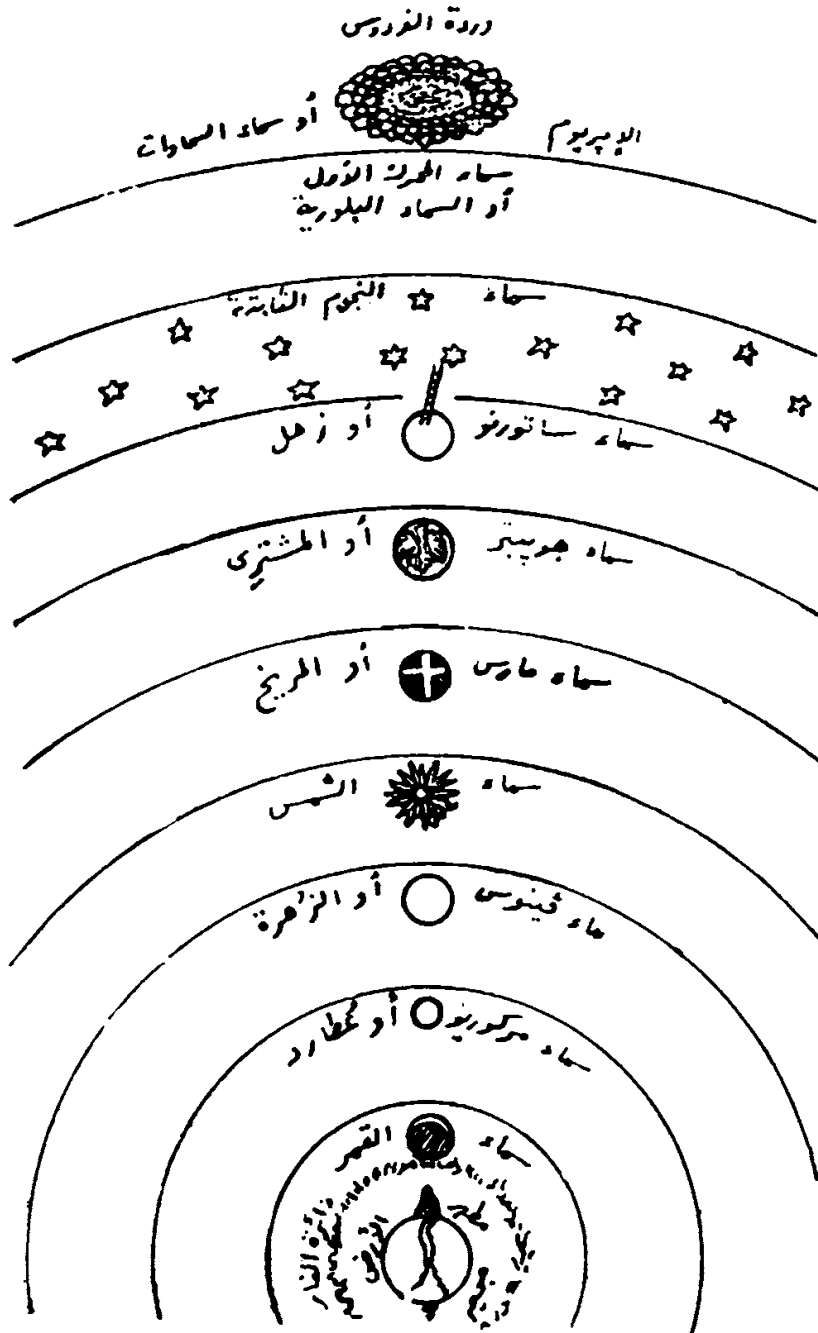 وردة الفردوس
الإمبريوم أو سماء السماوات
سماء المحرك الأول
أو السماء البلورية
سماء النجوم الثابتة
سماء ساتورنو أو زحل
سماء جوپيتر أو المشتري
سماء مارس أو المريخ
سماء الشمس
سماء ڤينوس أو الزُهرة
سماء مركوريو أو عُطارد
سماء القمر
دائرة النار
الأرض
مطهر